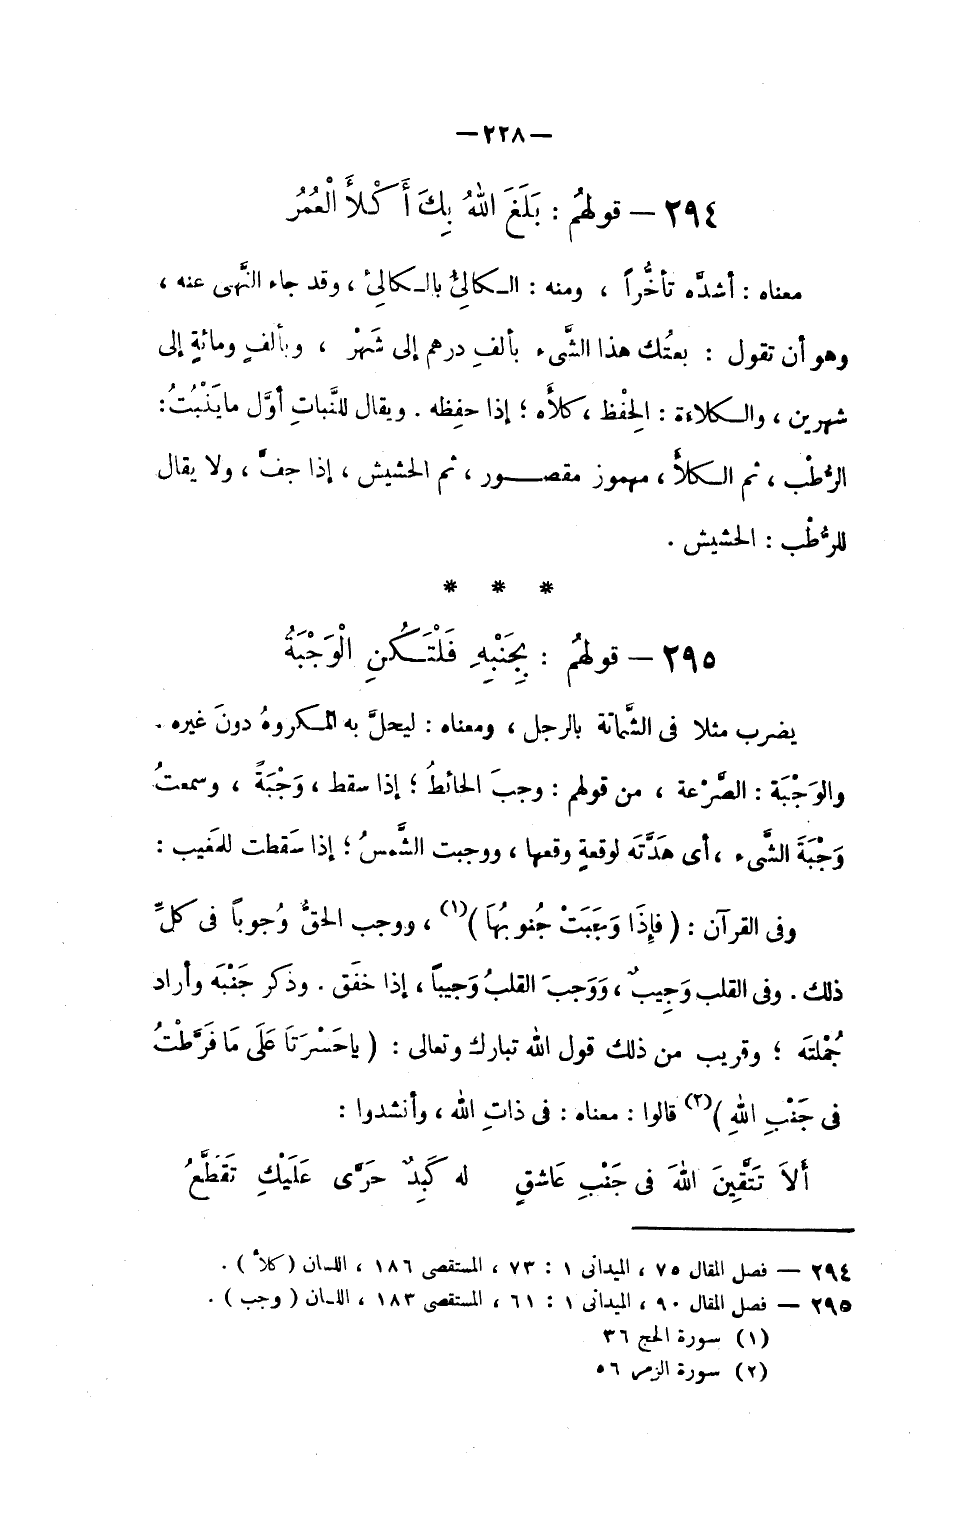 —٢٢٨—
٢٩٤ — قولهُم : بَلَغَ اللهُ بِكَ أَكْلأَ الْعُمُرُ
معناه : أشدَّه تأخُّراً ، ومنه : الـكالئُ بالـكالئِ ، وقد جاء النَّهى عنه ،
وهو أن تقول : بعتُك هذا الشَّىء بألفِ درهم إلى شَهْر ، وبألفٍ ومائةٍ إلى
شهرين ، والـكلاءة : الحِفْظ ، كلأَه ؛ إذا حفِظه . ويقال للنَّباتِ أوَّل مايَنْبُتُ :
الرُّطْب ، ثم الـكلأُ ، مهموز مقصـــور ، ثم الحشيش ، إذا جفَّ ، ولا يقال
للرُّطْب : الحشيش .
* * *
٢٩٥ — قولهُم : بِجَنْبِهِ فَلْتَـكُنِ الْوَجْبَةُ
يضرب مثلا فى الشَّماتة بالرجل ، ومعناه : ليحلَّ به المـكروهُ دونَ غيره .
والوَجْبَة : الصَّرْعة ، من قولهم : وجبَ الحائطُ ؛ إذا سقط ، وَجْبَةً ، وسمعتُ
وَجْبَةَ الشَّىء ، أى هَدَّتَه لوقعةٍ وقعها ، ووجبت الشَّمسُ ؛ إذا سَقطت للمَغيب :
وفى القرآن : ( فإِذَا وَجَبَتْ جُنوبُهَا )(١) ، ووجب الحقُّ وُجوباً فى كلِّ
ذلك . وفى القلب وَجِيبٌ ، وَوَجبَ القلبُ وَجيباً ، إذا خفَق . وذَكر جَنْبَه وأراد
جُمْلتَه ؛ وقريب من ذلك قول الله تبارك وتعالى : ( ياحَسْرَتَا عَلَى مَا فَرَّطْتُ
فى جَنْبِ اللهِ )(٢) قالوا : معناه : فى ذاتِ الله ، وأنشدوا :
أَلاَ تَتَّقِينَ اللهَ فى جَنْبِ عَاشقٍ له كَبِدٌ حَرَّى عَلَيْكِ تَقَطَّعُ
٢٩٤ — فصل المقال ٧٥ ، الميدانى ١ : ٧٣ ، المستقصى ١٨٦ ، اللسان ( كلأ ) .
٢٩٥ — فصل المقال ٩٠ ، الميدانى ١ : ٦١ ، المستقصى ١٨٣ ، اللسان ( وجب ) .
(١) سورة الحج ٣٦
(٢) سورة الزمر ٥٦